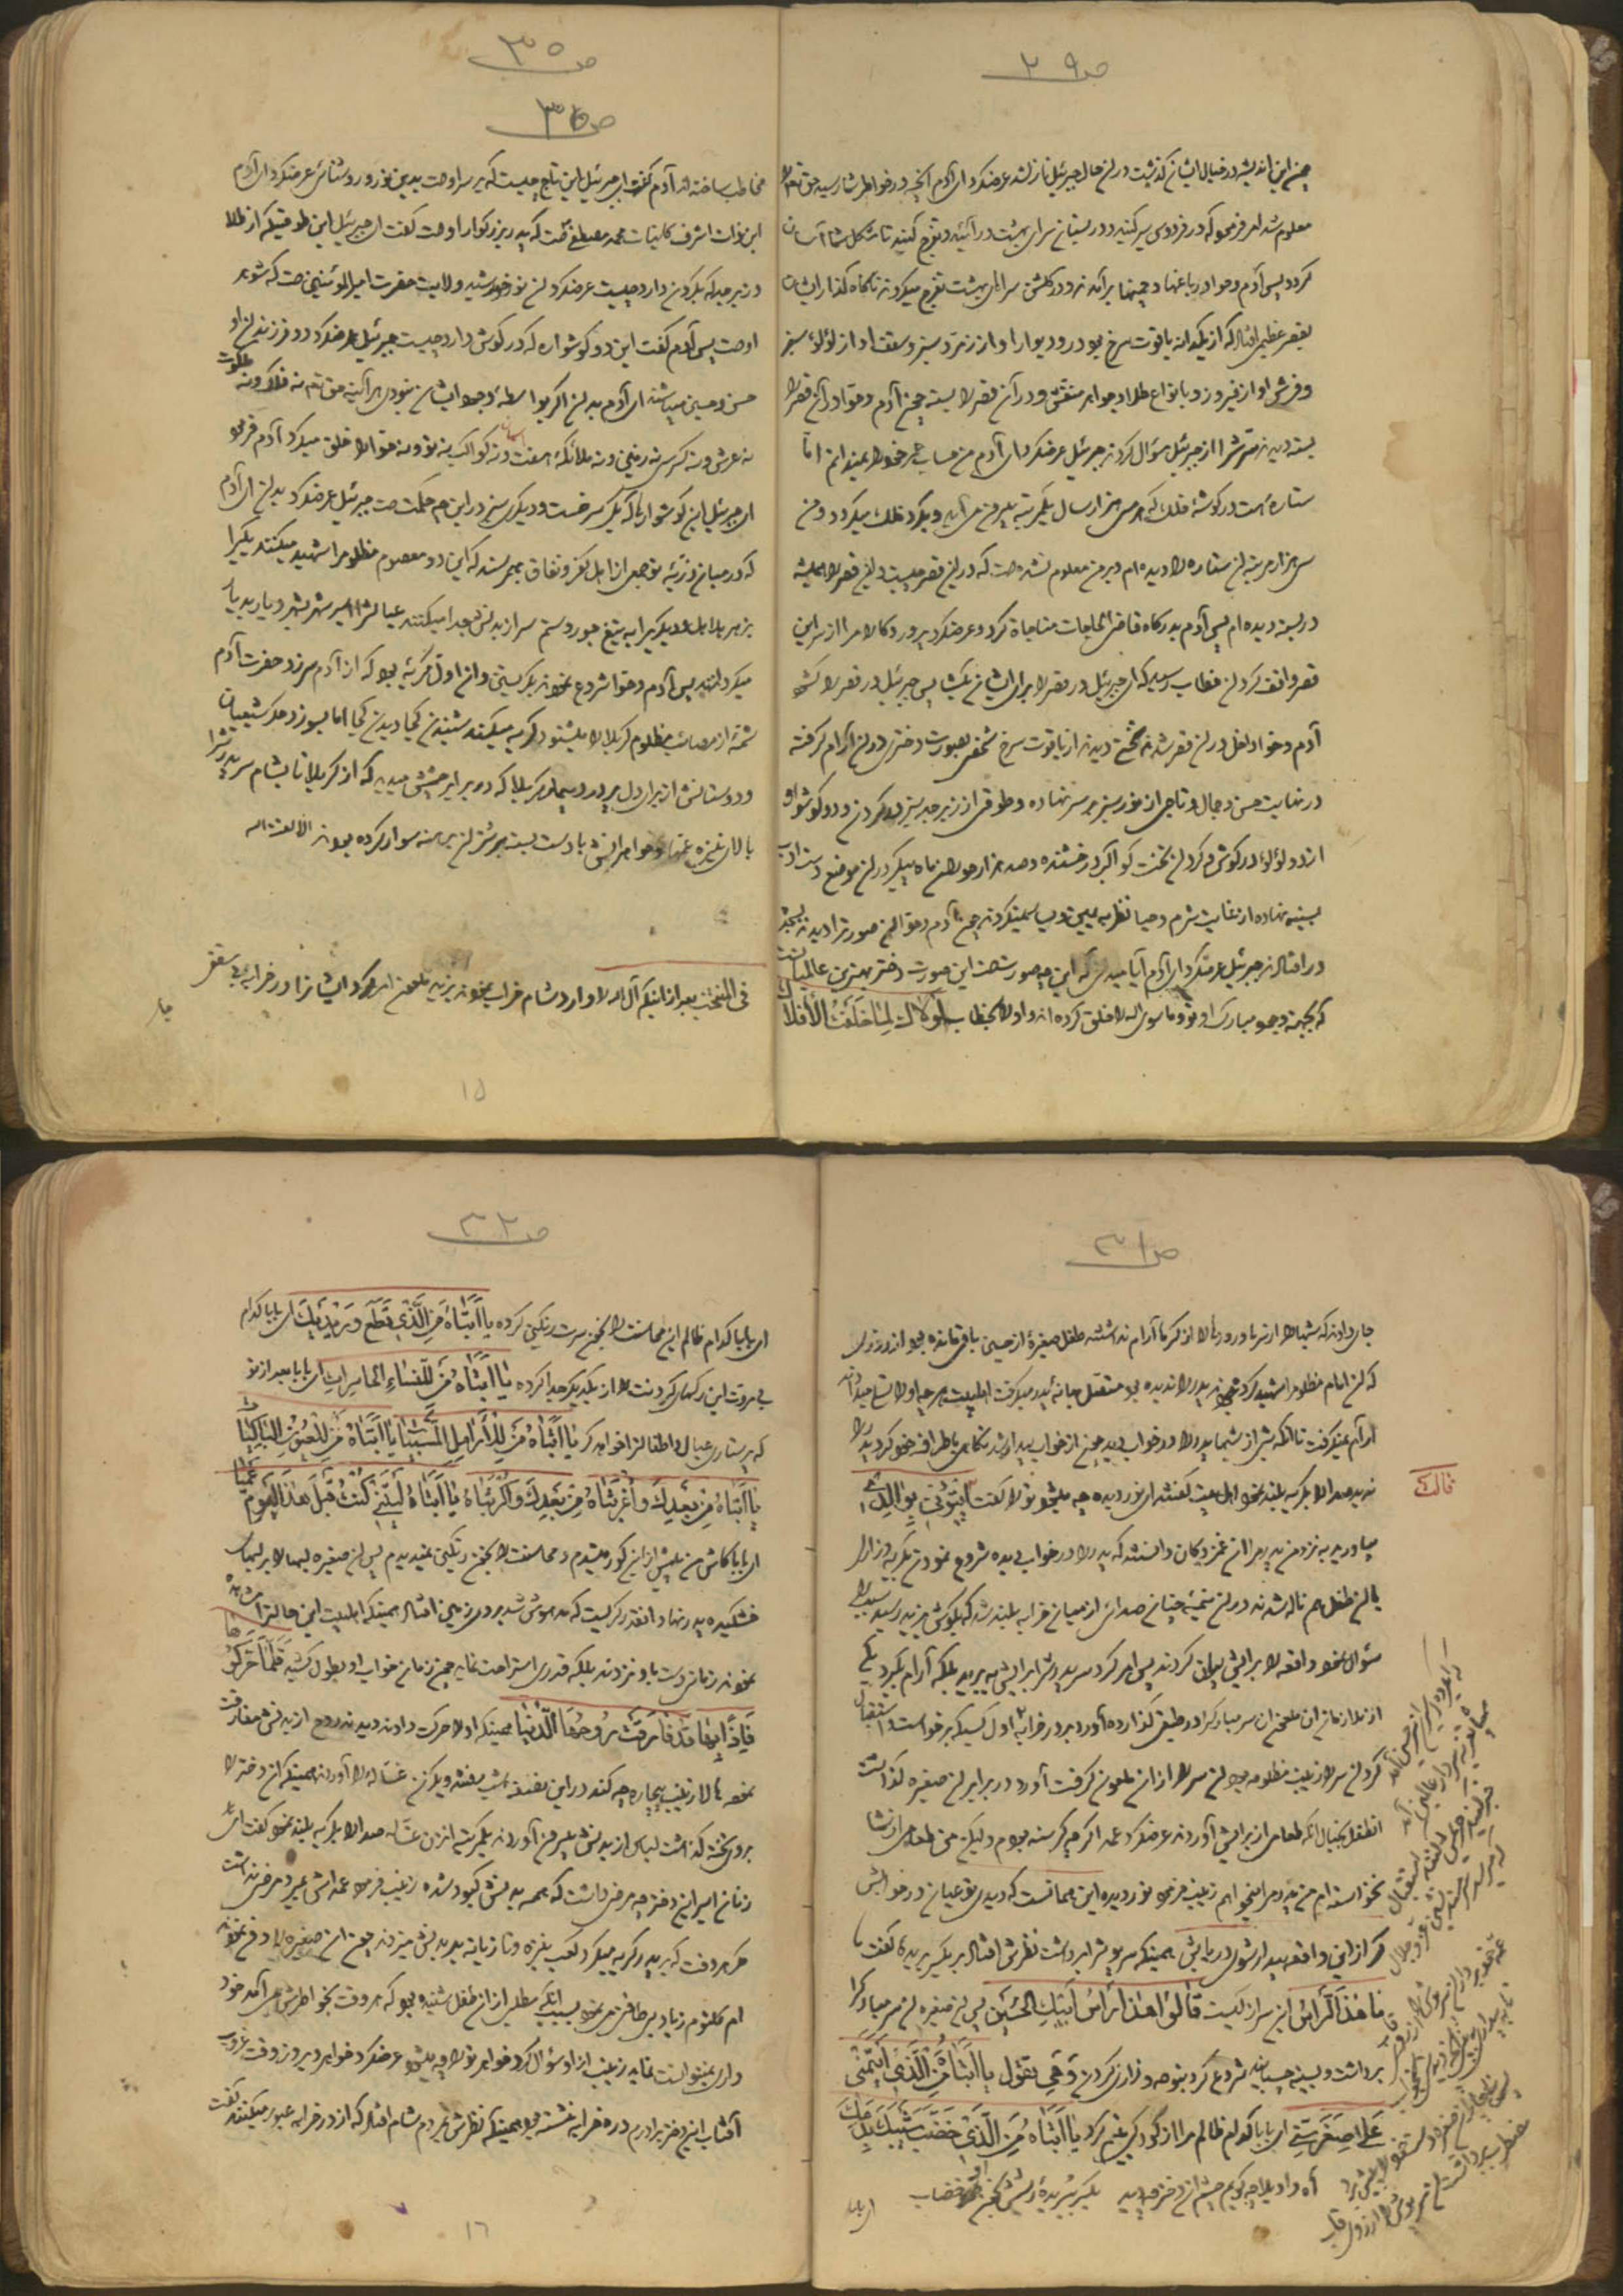 ص۲۹
چون این اندیشه در خیال ایشان گذشت در آن حال جبرئیل نازل شد عرضکرد ای آدم آنچه در خواطر شما رسید حق تعالی را
معلوم شد امر فرمود که در فردوس سیر کنید و در بستان سرای بهشت در آئید و تفرج کنید تا شکل شما آسان
گردد پس آدم و حوا در باغها و چمنها برآمدند و در گلشن سرای بهشت تفرج میکردند ناگاه گذار ایشان
بقصر عظیمی افتاد که از یکدانه یاقوت سرخ بود در و دیوار او از زمرّد سبز و سقف او از لؤلؤ سفید
و فرش او از فیروزه و بانواع طلا و جواهر منقش و در آن قصر را بسته چون آدم و حوّا در آن قصر را
بسته دیدند سرّش را از جبرئیل سؤال کردند جبرئیل عرضکرد ای آدم من حساب عمر خود را نمیدانم امّا
ستاره است در گوشهٔ فلک که هر سی هزار سال یکمرتبه بیرون می آید و بگرد فلک میگردد و من
سی هزار مرتبه آن ستاره را دیده ام و بر من معلوم نشده است که در این قصر چیست و این قصر را همیشه
در بسته دیده ام پس آدم بدرگاه قاضی الحاجات مناجاة کرد و عرضکرد پروردگارا مرا از سر این
قصر واقف گردان خطاب رسید که ای جبرئیل در قصر را برای ایشان بگشا پس جبرئیل در قصر را گشود
آدم و حوا داخل در آن قصر شدند تختی دیدند از یاقوت سرخ شخصی بصورت دختری در آن آرام گرفته
در نهایت حسن و جمال و تاجی از نور سبز بر سر نهاده و طوقی از زبرجد سبز در گردن و دو گوشواره
از دو لؤلؤ در گوش و گرد آن تخت کواکب درخشنده و صد هزار حوران ماه پیکر در آن موضع دست ادب
بسینه نهاده از غایت شرم و حیا نظر به یمین و یسار نمیکردند چون آدم و حوا آن صورت را دیدند بسجده
در افتادند جبرئیل عرضکرد ای آدم آیا میدانی که این چه صورتست این صورت دختر بهترین عالمیانست
که بجهت وجود مبارک او تو و ما سوی الله را خلق کرده اند و او را بخطاب لَوْلَاكَ لَمَا خَلَقْتُ الْأَفْلَاكَ
ص۳۵
ص۳۰
مخاطب ساخته اند آدم گفت ای جبرئیل این تاج چیست که بر سر او هست بدین نور و روشنائی عرضکرد ای آدم
این ذات اشرف کاینات محمد مصطفی است که پدر بزرگوار اوست گفت ای جبرئیل این طوقیکه از طلا
و زبرجد که بگردن دارد چیست عرضکرد آن نور خورشید ولایت حضرت امیر المؤمنین است که شوهر
اوست پس آدم گفت این دو گوشواره که در گوش دارد چیست جبرئیل عرضکرد دو فرزندان او
حسن و حسین میباشند ای آدم بدان اگر بواسطهٔ وجود ایشان نبودی هر آینه حق تعالی نه فلک و نه ملکوت
نه عرش و نه کرسی نه زمین و نه ملائکهٔ هفت آسمان و نه کواکب نه تو و نه حوّا را خلق میکرد آدم فرمود
ای جبرئیل این گوشوارها که یکی سرخست و دیگری سبز در این هم حکمت است جبرئیل عرضکرد بدان ای آدم
که در میان ذرّیهٔ تو جمعی از اهل کفر و نفاق بهم رسند که این دو معصوم مظلوم را شهید میکنند یکی را
بزهر هلاهل و دیگری را به تیغ جور و ستم سر از بدنش جدا میکنند عیالش را اسیر شهر بشهر و دیار بدیار
میگردانند پس آدم و حوّا شروع نمودند بگریستن و این اول گریهٔ بود که از آدم سرزد حضرت آدم
شمّه از مصائب مظلوم کربلا را میشنود گریه میکند شنیدن کجا دیدن کجا اما بسوزد جگر شیعیان
و دوستانش از برای دل پر درد بیمار کربلا که در برابر چشمش میدید که از کربلا تا بشام سر پدرش را
بالای نیزه عمّها و خواهرانش با دست بسته بر شتران برهنه سوار کرده بودند الا لعنة الله
فی المنتخب بعد از اینکه آل الله را وارد شام خراب نمودند یزید ملعون امر کرد ایشانرا در خرابه بی سقفی
جا
۱۵
ص۳۱
جای دادند که شبها از سرما و روزها از گرما آرام نداشتند طفل صغیرهٔ از حسین باقی مانده بود از روزی
که آن امام مظلوم را شهید کردند پدر را ندیده بود متصل بهانهٔ پدر میگرفت اهلبیت هر چه او را تسلی میدادند
آرام نمیگرفت تا آنکه شبی از شبها پدر را در خواب دید چون از خواب بیدار شد نگاهی باطراف خود کرد پدر را
ندید صدا را بگریه بلند نمود اهل بیت گفتند ای نور دیده چه میشود تو را گفت ایتُونی بِوَالِدی
قالت
بیاورید به نزد من پدرم را آن غمزدگان دانستند که پدر را در خواب دیده شروع نمودند بگریه و زاری
با آن طفل هم ناله شدند در آن نیمهٔ شب چنان صدائی از میان خرابه بلند شد که بگوش یزید رسید سبب را
سؤال نمود واقعه را برایش بیان کردند پس امر کرد سر پدرش را برایش ببرید بلکه آرام بگیرد یکی
از ملازمان آن ملعون آن سر مبارک را در طبق گذارده آورد بدر خرابه اول کسیکه برخواست و استقبال
کرد آن سر را زینب مظلومه بود آن سر را از آن ملعون گرفت آورد در برابر آن صغیره گذاشت
آنطفل بخیال آنکه طعامی از برایش آوردند عرضکرد عمه اگر چه گرسنه بودم ولیکن من طعامی از شما
نخواسته ام من پدرم را میخواهم زینب فرمود نور دیده این همانست که دیدی تو عیان در خوابش
مگر از این واقعه بیدار شوی دریابش همینکه سرپوش را برداشت نظرش افتاد بر یکسر بریده گفت
مَا هٰذَا الرَّأْسُ این سر از کیست قَالُوا هٰذَا رَأْسُ أَبِيكِ الْحُسَيْنِ پس آن صغیره آن سر مبارک را
برداشت و بسینه چسبانید شروع کرد بنوحه و زاری کردن وَ هِيَ تَقُولُ يَا أَبَتَاهُ مَنِ الَّذِي أَيْتَمَنِي
عَلَى صِغَرِ سِنِّي ای بابا کدام ظالم مرا از کودکی یتیم کرد يَا أَبَتَاهُ مَنِ الَّذِي خَضَبَ شَيْبَكَ بِدَمِكَ
آه و اویلا چه گویم چشم آن دختر چه دید یکسر بریدهٔ ریشش بخون خضاب
ای بابا
ص۳۲
ای بابا کدام ظالم این محاسنت را بخون سرت رنگین کرده يَا أَبَتَاهُ مَنِ الَّذِي قَطَعَ وَرِيدَيْكَ ای بابا کدام
بی مروت این رگهای گردنت را از یکدیگر جدا کرده يَا أَبَتَاهُ مَنْ لِلنِّسَاءِ الْحَاسِرَاتِ ای بابا بعد از تو
که پرستاری عیال و اطفالت را خواهد کرد يَا أَبَتَاهُ مَنْ لِلْأَرَامِلِ الْمُسْبَيَاتِ يَا أَبَتَاهُ مَنْ لِلْعُيُونِ الْبَاكِيَاتِ
يَا أَبَتَاهُ مَنْ بَعْدَكَ وَا غُرْبَتَاهُ مِنْ بَعْدِكَ وَا كُرْبَتَاهُ يَا أَبَتَاهُ لَيْتَنِي كُنْتُ قَبْلَ هٰذَا الْيَوْمِ عَمْيَاءَ
ای بابا کاش من پیش از این کور میشدم و محاسنت را بخون رنگین نمیدیدم پس آن صغیره لبها را بر لبهای
خشکیده پدر نهاد و آنقدر گریست که مدهوش شد بر روی زمین افتاد همینکه اهلبیت این حالت را مشاهده
نمودند زمانی دست باو نزدند بلکه قدری استراحت نماید چون زمان خواب او بطول کشید فَلَمَّا حَرَّكُوهَا
فَإِذًا بِهَا قَدْ فَارَقَتْ رُوحُهَا الدُّنْيَا همینکه او را حرکت دادند دیدند روح از بدنش مفارقت
نموده حالا زینب بیچاره چه کند در این نصف شب رفتند و یکزن غسّاله را آوردند همینکه آن دختر را
بروی تخته گذاشت لباس از بدنش بیرون آوردند یکمرتبه آن زن غسّاله صدا را بگریه بلند نمود گفت ای
زنان اسیر این دختر چه مرض داشت که همه بدنش کبود شده زینب فرمود عمه اش بمیرد مرضی نداشت
هر وقت که بر پدر گریه میکرد کعب نیزه و تازیانه بر بدنش میزدند چون آن صغیره را دفن نمودند
ام کلثوم زیاد بی طاقتی می نمود بسبب آنکه مطلبی از آن طفل شنیده بود که هر وقت بخواطرش می آمد خود
داری نمیتوانست نماید زینب از او سؤال کرد خواهر تو را چه میشود عرضکرد خواهر دیروز وقت غروب
آفتاب این دختر برادرم در خرابه نشسته بود همینکه نظرش بمردم شام افتاد که از در خرابه عبور میکنند گفت
۱۶